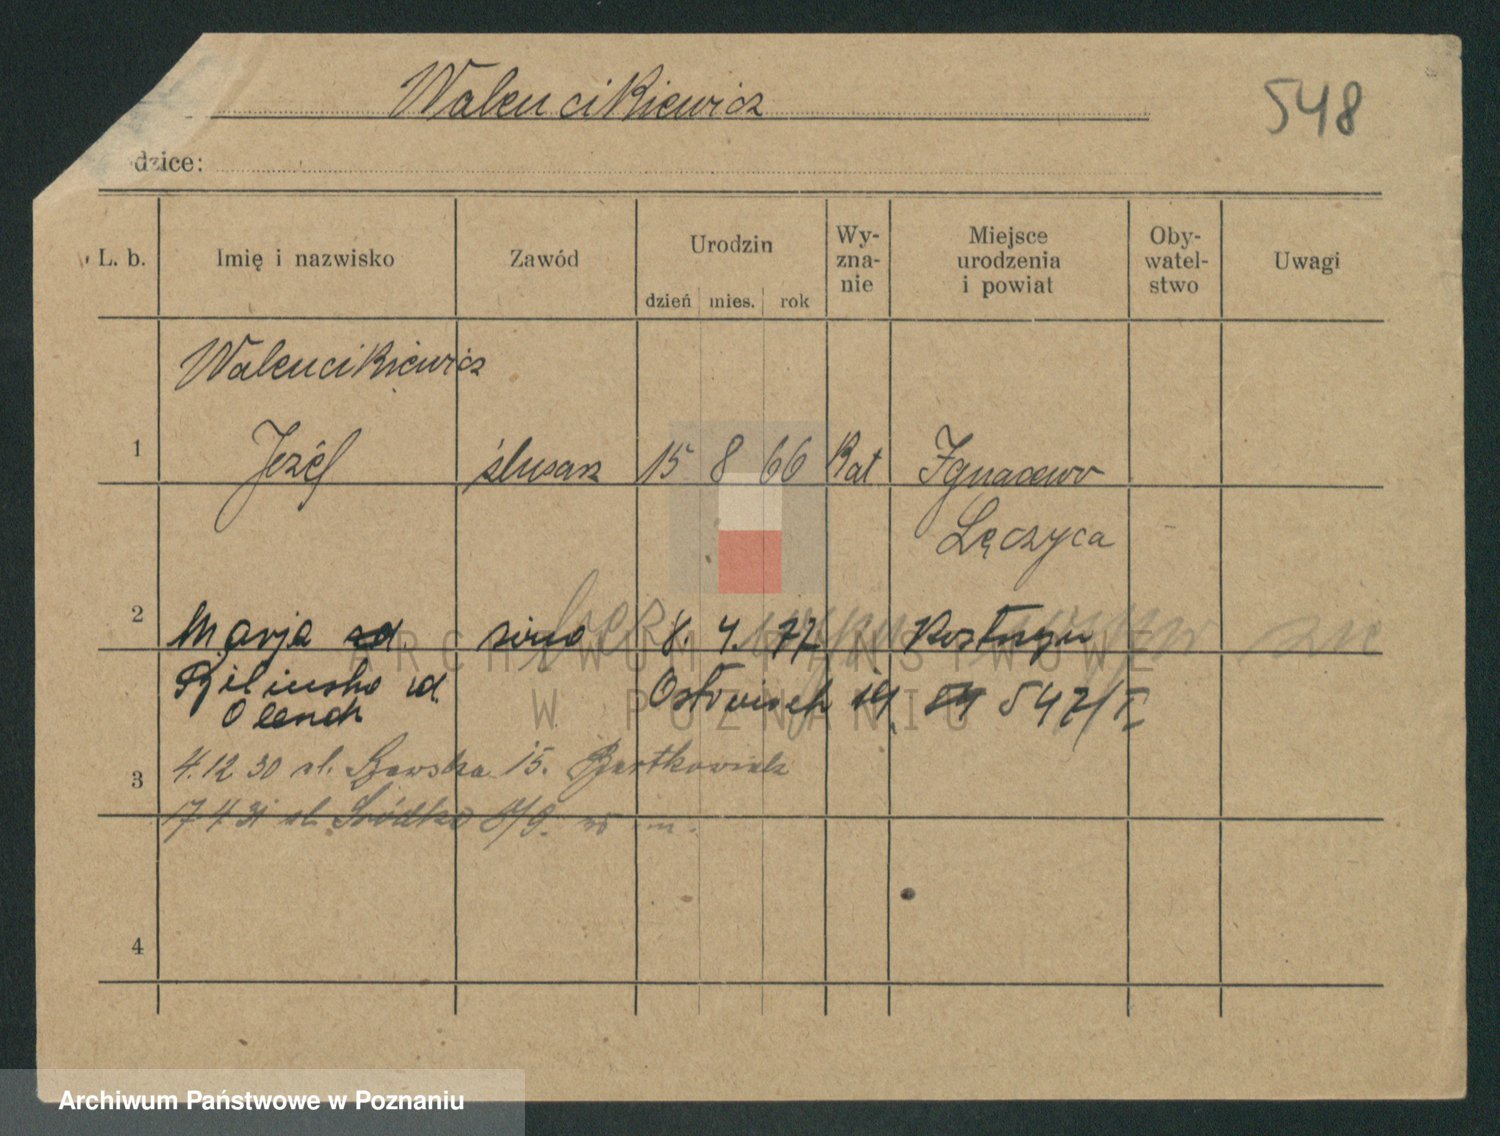 Walencikiewicz
548
dzice:
L. b. Imię i nazwisko Zawód Urodzin dzień mies. rok Wy-zna-nie Miejsce urodzenia i powiat Oby-watel-stwo Uwagi
Walencikiewicz
1 Józef ślusarz 15 8 66 Kat Ignacewo
Łęczyca
2 Marja zd 8. 4. 77 Kostrzyn
Bilinska zd.
3 4.12 30 ul. 15. Bartkowiak
17 4 31 ul. Śródka 8/9.
4
ARCHIWUM PAŃSTWOWE
W POZNANIU
Archiwum Państwowe w Poznaniu